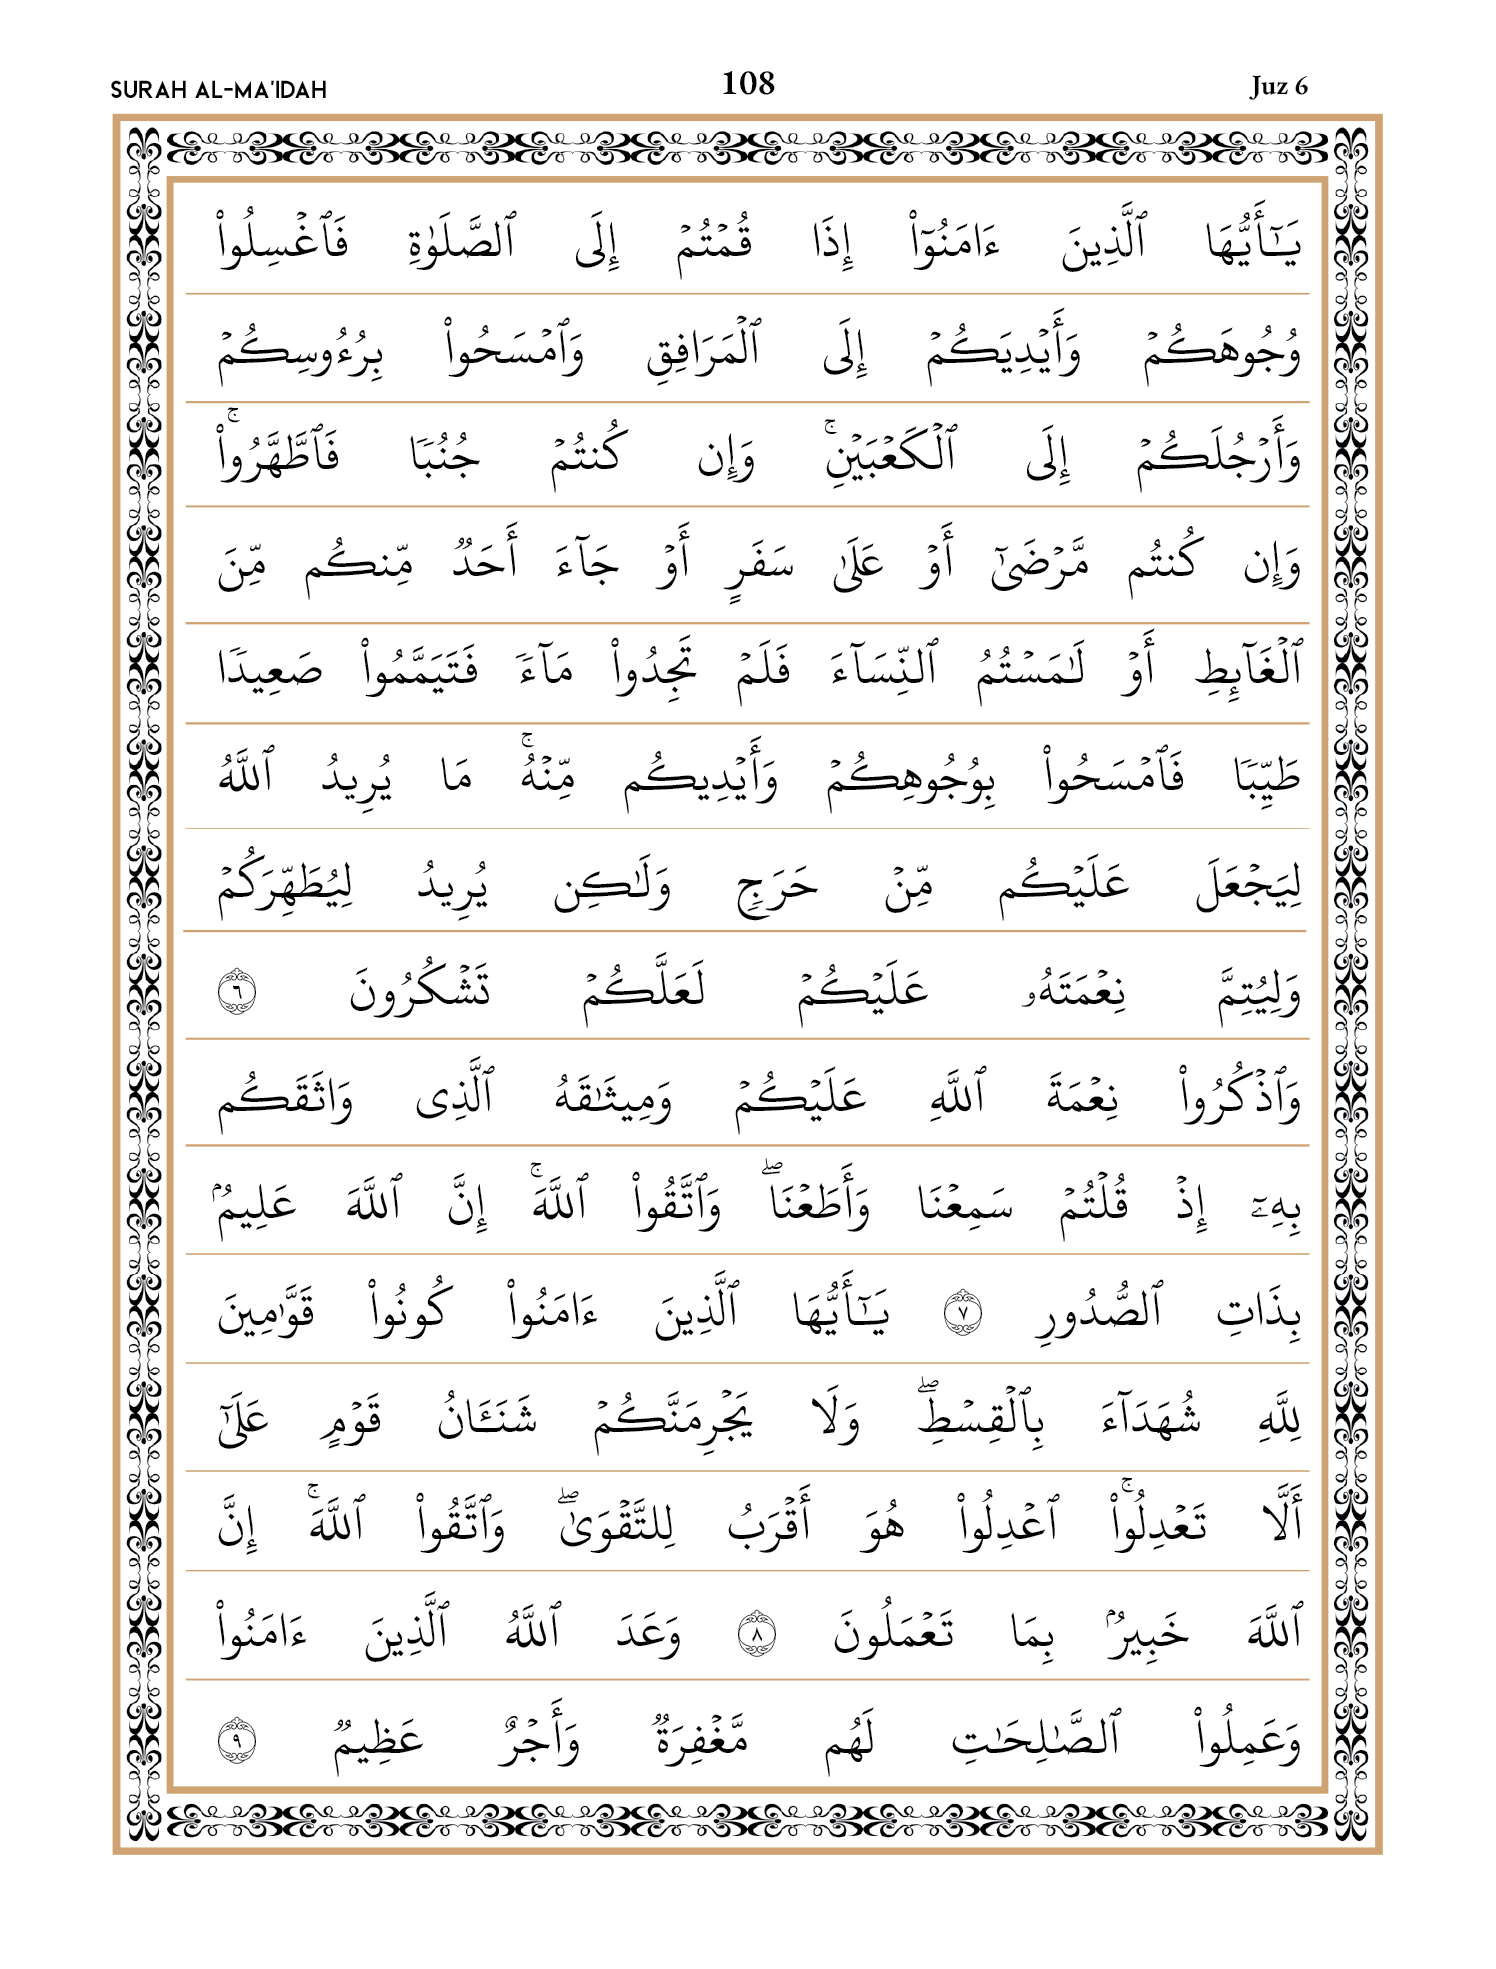 SURAH AL-MA'IDAH 108 Juz 6
يَـٰٓأَيُّهَا ٱلَّذِينَ ءَامَنُوٓا۟ إِذَا قُمْتُمْ إِلَى ٱلصَّلَوٰةِ فَٱغْسِلُوا۟
وُجُوهَكُمْ وَأَيْدِيَكُمْ إِلَى ٱلْمَرَافِقِ وَٱمْسَحُوا۟ بِرُءُوسِكُمْ
وَأَرْجُلَكُمْ إِلَى ٱلْكَعْبَيْنِ ۚ وَإِن كُنتُمْ جُنُبًا فَٱطَّهَّرُوا۟ ۚ
وَإِن كُنتُم مَّرْضَىٰٓ أَوْ عَلَىٰ سَفَرٍ أَوْ جَآءَ أَحَدٌ مِّنكُم مِّنَ
ٱلْغَآئِطِ أَوْ لَـٰمَسْتُمُ ٱلنِّسَآءَ فَلَمْ تَجِدُوا۟ مَآءً فَتَيَمَّمُوا۟ صَعِيدًا
طَيِّبًا فَٱمْسَحُوا۟ بِوُجُوهِكُمْ وَأَيْدِيكُم مِّنْهُ ۚ مَا يُرِيدُ ٱللَّهُ
لِيَجْعَلَ عَلَيْكُم مِّنْ حَرَجٍ وَلَـٰكِن يُرِيدُ لِيُطَهِّرَكُمْ
وَلِيُتِمَّ نِعْمَتَهُۥ عَلَيْكُمْ لَعَلَّكُمْ تَشْكُرُونَ ٦
وَٱذْكُرُوا۟ نِعْمَةَ ٱللَّهِ عَلَيْكُمْ وَمِيثَـٰقَهُ ٱلَّذِى وَاثَقَكُم
بِهِۦٓ إِذْ قُلْتُمْ سَمِعْنَا وَأَطَعْنَا ۖ وَٱتَّقُوا۟ ٱللَّهَ ۚ إِنَّ ٱللَّهَ عَلِيمٌۢ
بِذَاتِ ٱلصُّدُورِ ٧ يَـٰٓأَيُّهَا ٱلَّذِينَ ءَامَنُوا۟ كُونُوا۟ قَوَّٰمِينَ
لِلَّهِ شُهَدَآءَ بِٱلْقِسْطِ ۖ وَلَا يَجْرِمَنَّكُمْ شَنَـَٔانُ قَوْمٍ عَلَىٰٓ
أَلَّا تَعْدِلُوا۟ ۚ ٱعْدِلُوا۟ هُوَ أَقْرَبُ لِلتَّقْوَىٰ ۖ وَٱتَّقُوا۟ ٱللَّهَ ۚ إِنَّ
ٱللَّهَ خَبِيرٌۢ بِمَا تَعْمَلُونَ ٨ وَعَدَ ٱللَّهُ ٱلَّذِينَ ءَامَنُوا۟
وَعَمِلُوا۟ ٱلصَّـٰلِحَـٰتِ لَهُم مَّغْفِرَةٌ وَأَجْرٌ عَظِيمٌ ٩